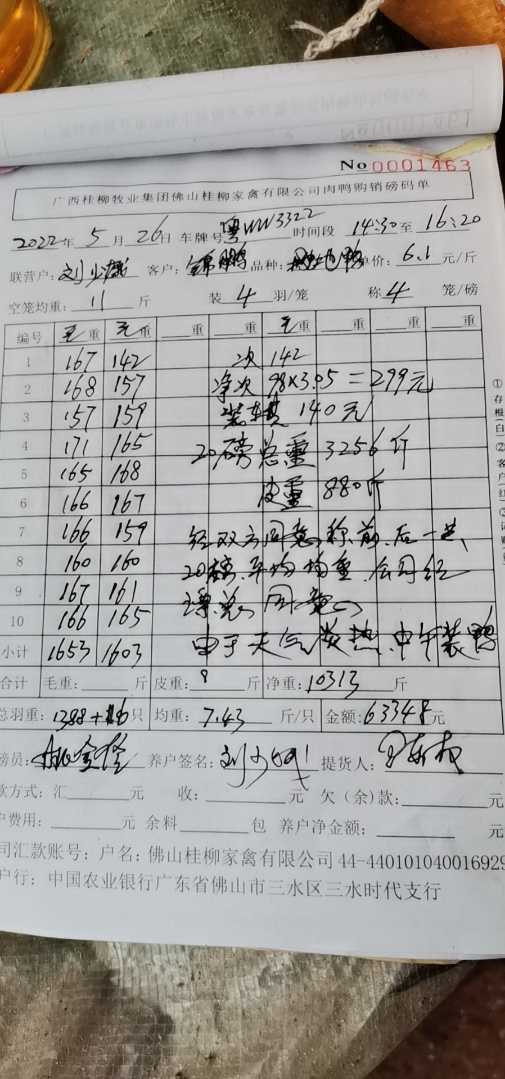 No 0001463
广西桂柳牧业集团佛山桂柳家禽有限公司肉鸭购销磅码单
2022年 5 月 26日 车牌号 粤WW3322 时间段 14:30至 16:20
联营户: 刘少 客户: 锦鹏 品种: 鸭 单价: 6.1 元/斤
空笼均重: 11 斤 装 4 羽/笼 称 4 笼/磅
编号 毛重 毛重 重 重 毛重 重 重 重
1 167 142 次 142
2 168 157 净次 98×3.05=299元
3 157 159 装车费 140元
4 171 165 20磅总重 3256斤
5 165 168
6 166 167 皮重 880斤
7 166 159 经双方同意称前、后一共
8 160 160 20磅、平均均重、公司经
9 167 161 同意
10 166 165
小计 1653 1603 由于天气炎热、中午装鸭
合计 毛重: 斤 皮重: 斤 净重: 10313 斤
总羽重: 1388+ 只 均重: 7.43 斤/只 金额: 63348元
磅员: 养户签名: 刘少 提货人:
款方式: 汇 元 收: 元 欠(余)款:
户费用: 元 余料 包 养户净金额: 元
司汇款账号: 户名: 佛山桂柳家禽有限公司 44-440101040016929
户行: 中国农业银行广东省佛山市三水区三水时代支行
①存根(白)②客户(红)③